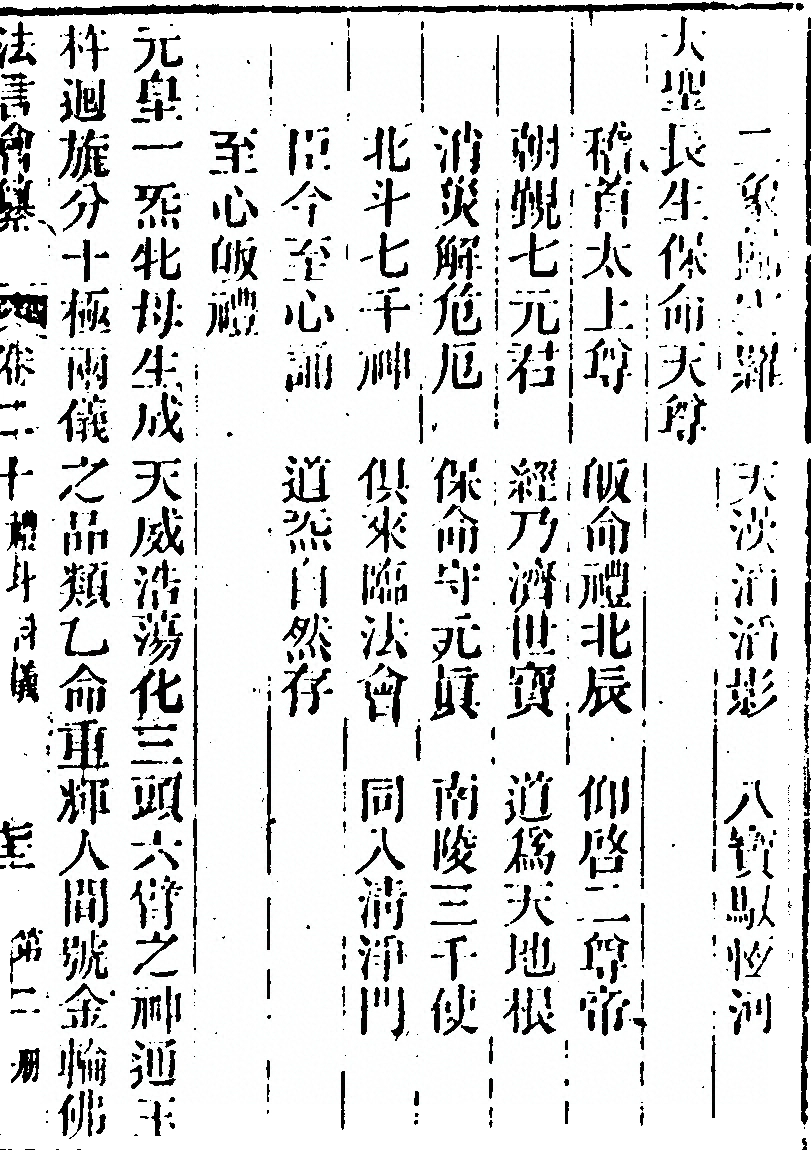 二象臨空羅　天漢滔滔彭　八寶馭恆河
大聖長生保命天尊
稽首太上尊　皈命禮北辰　仰啓二尊帝
朝覲七元君　經乃濟世寶　道爲天地根
消災解危厄　保命守元眞　南陵三千使
北斗七千神　俱來臨法會　同入淸淨門
臣今至心誦　道炁自然存
至心皈禮
元皇一炁牝母生成天威浩蕩化三頭六臂之神通玉
杵迴旋分十極兩儀之品類乙命重輝人間號金輪佛
法言會纂　卷二十　禮斗科儀　第二册